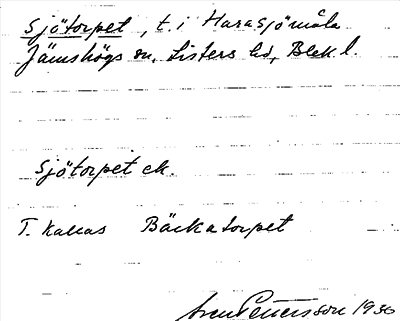 Sjötorpet, t. i Harasjömåla
Jämshögs sn, Listers hd, Blek l.
Sjötorpet ek.
T. kallas Bäckatorpet
Sven Pettersson 1936